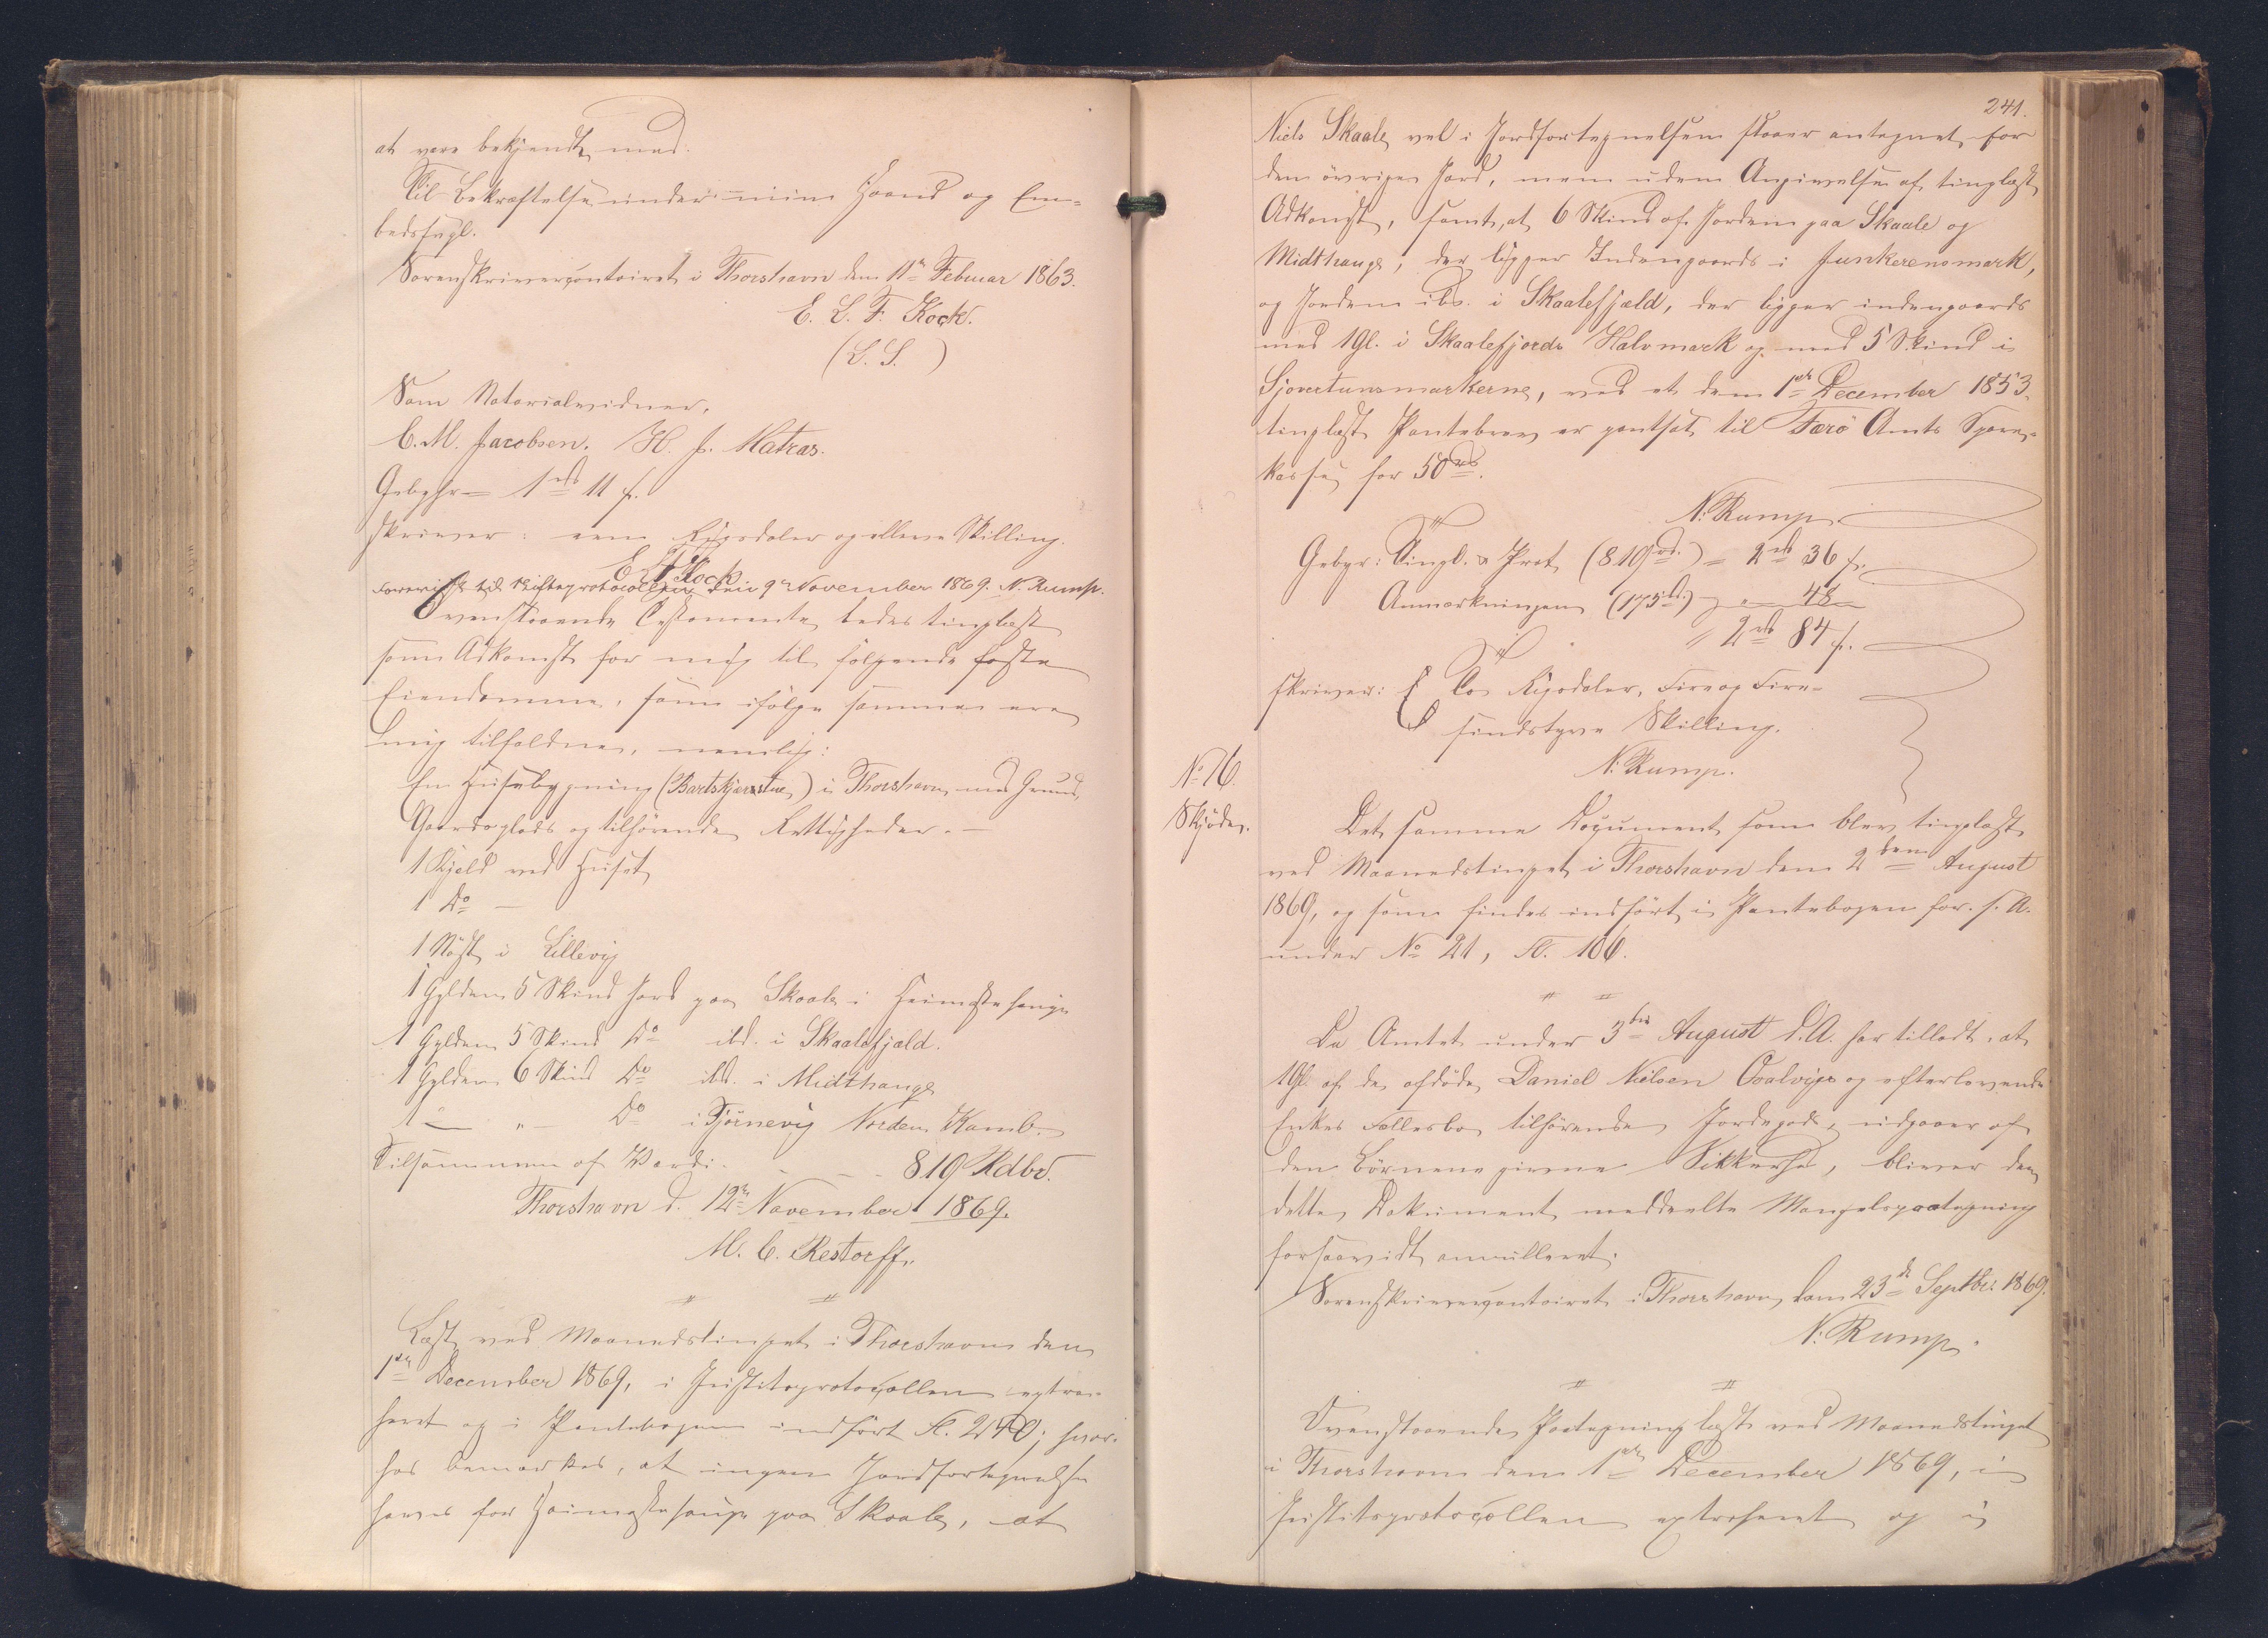 at være bekjendt med.
Til Bekræftelse under min Haand og Em-
bedssegl.
Sorenskrivercontoiret i Thorshavn den 11te Februar 1863.
E. L. F. Kock.
(L. S.)
Som Notarialvidner,
C. M. Jacobsen. H. J. Matras.
Gebyhr = 1 rd 11 s.
skriver: een Rigsdaler og elleve Skilling.
E L F Kock
Foreviist til Skifteprotocollen den 9de November 1869. N. Rump.
Ovenstaaende Testamente bedes tinglæst
som Adkomst for mig til følgende faste
Eiendomme, som ifølge samme ere
mig tilfaldne, nemlig:
En Huusbygning (Bartskjærstue) i Thorshavn med Grund,
Gaardsplads og tilhørende Rettigheder. —
1 Kjeld ved Huset
1 Do —
1 Nøst i Lillevig
1 Gylden 5 Skind Jord paa Skaale i Heimastehauge
1 Gylden 5 Skind Do ibd. i Skaalefjæld.
1 Gylden 6 Skind Do ibd. i Midthauge
1 — " — Do i Tjørnevig Norden Kamb.
Tilsammen af Værdi - - - 819 Rdbd.
Thorshavn d. 12te November 1869.
M. C. Restorff.
Læst ved Maanedstinget i Thorshavn den
1ste December 1869, i Justitsprotocollen extra-
heret og i Pantebogen indført Fl. 240; hvor-
hos bemærkes, at ingen Jordfortegnelse
haves for Heimastehauge paa Skaale, at
241.
Niels Skaale vel i Jordfortegnelsen staaer antegnet for
den øvrige Jord, men uden Angivelse af tinglæst
Adkomst, samt, at 6 Skind af Jorden paa Skaale og
Midthauge, der ligger Indengaards i Junkerensmark,
og Jorden ibd. i Skaalefjæld, der ligger indengaards
med 1 Gl. i Skaalefjords Halvmark og med 5 Skind i
Sjovertunsmarkerne, ved et den 1ste December 1853
tinglæst Pantebrev er pantsat til Færø Amts Spare-
kasse for 50 rd.
N. Rump.
Gebyr: Tingl. & Prot. (819 rd.) = 2 rd 36 s.
Anmærkningen (175 rd.) = " — 48 —
= 2 rd 84 s.
skriver: To Rigsdaler, Fire og Fire-
sindstyve Skilling.
N. Rump.
No 16.
Skjøde.
Det samme Document som blev tinglæst
ved Maanedstinget i Thorshavn den 2den August
1869, og som findes indført i Pantebogen for s. A.
under No 21, Fl. 106.
Da Amtet under 3die August d. A. har tilladt, at
1 Gl. af de afdøde Daniel Nielsen Qvalvigs og efterlevende
Enkes Fællesbo tilhørende Jordegods, udgaaer af
den Børnene givne Sikkerhed, bliver den
dette Dokument meddeelte Mangelspaategning
forsaavidt annulleret.
Sorenskrivercontoiret i Thorshavn, den 23de Septbr: 1869.
N. Rump.
Ovenstaaende Paategning læst ved Maanedstinget
i Thorshavn den 1ste December 1869, i
Justitsprotocollen extraheret og i